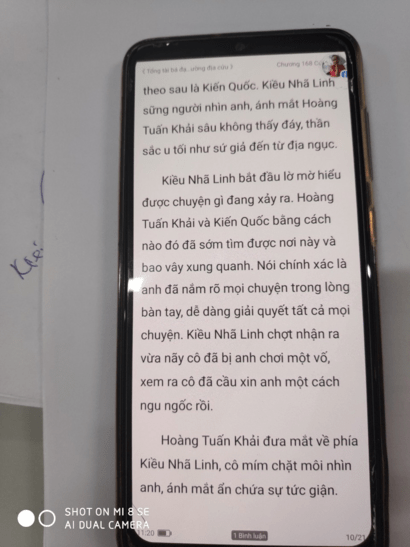 < Tổng tài bá đạ...uồng địa cậu >
Chương 168 Cứ
theo sau là Kiến Quốc. Kiều Nhã Linh
sững người nhìn anh, ánh mắt Hoàng
Tuấn Khải sâu không thấy đáy, thần
sắc u tối như sứ giả đến từ địa ngục.
Kiều Nhã Linh bắt đầu lờ mờ hiểu
được chuyện gì đang xảy ra. Hoàng
Tuấn Khải và Kiến Quốc bằng cách
nào đó đã sớm tìm được nơi này và
bao vây xung quanh. Nói chính xác là
anh đã nắm rõ mọi chuyện trong lòng
bàn tay, dễ dàng giải quyết tất cả mọi
chuyện. Kiều Nhã Linh chợt nhận ra
vừa nãy cô đã bị anh chơi một vố,
xem ra cô đã cầu xin anh một cách
ngu ngốc rồi.
Hoàng Tuấn Khải đưa mắt về phía
Kiều Nhã Linh, cô mím chặt môi nhìn
anh, ánh mắt ẩn chứa sự tức giận.
1:20
1 Bình luận
10/21
SHOT ON MI 8 SE
AI DUAL CAMERA